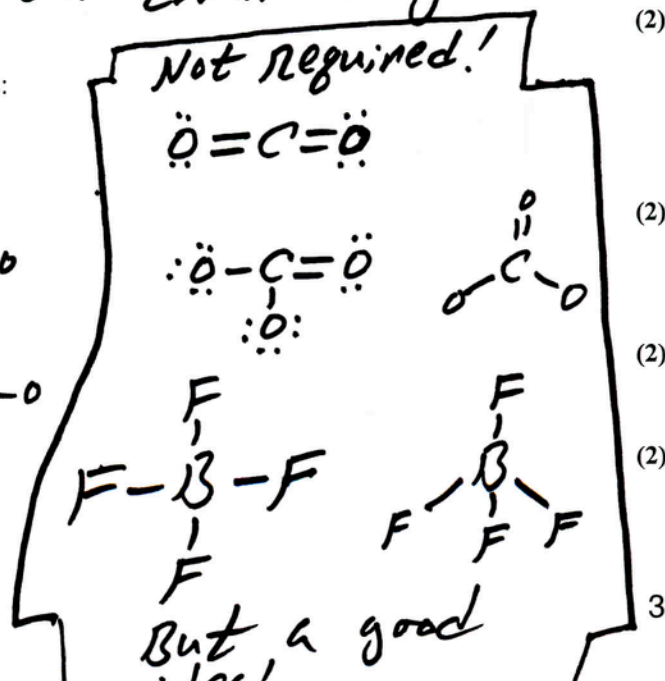 (2)
Not Required!
:
Ö=C=Ö
(2)
O
:Ö-C=Ö
:O:
O
C
O O
(2)
-O
F
F-B-F
F
F
B
F F F
(2)
3
But a good